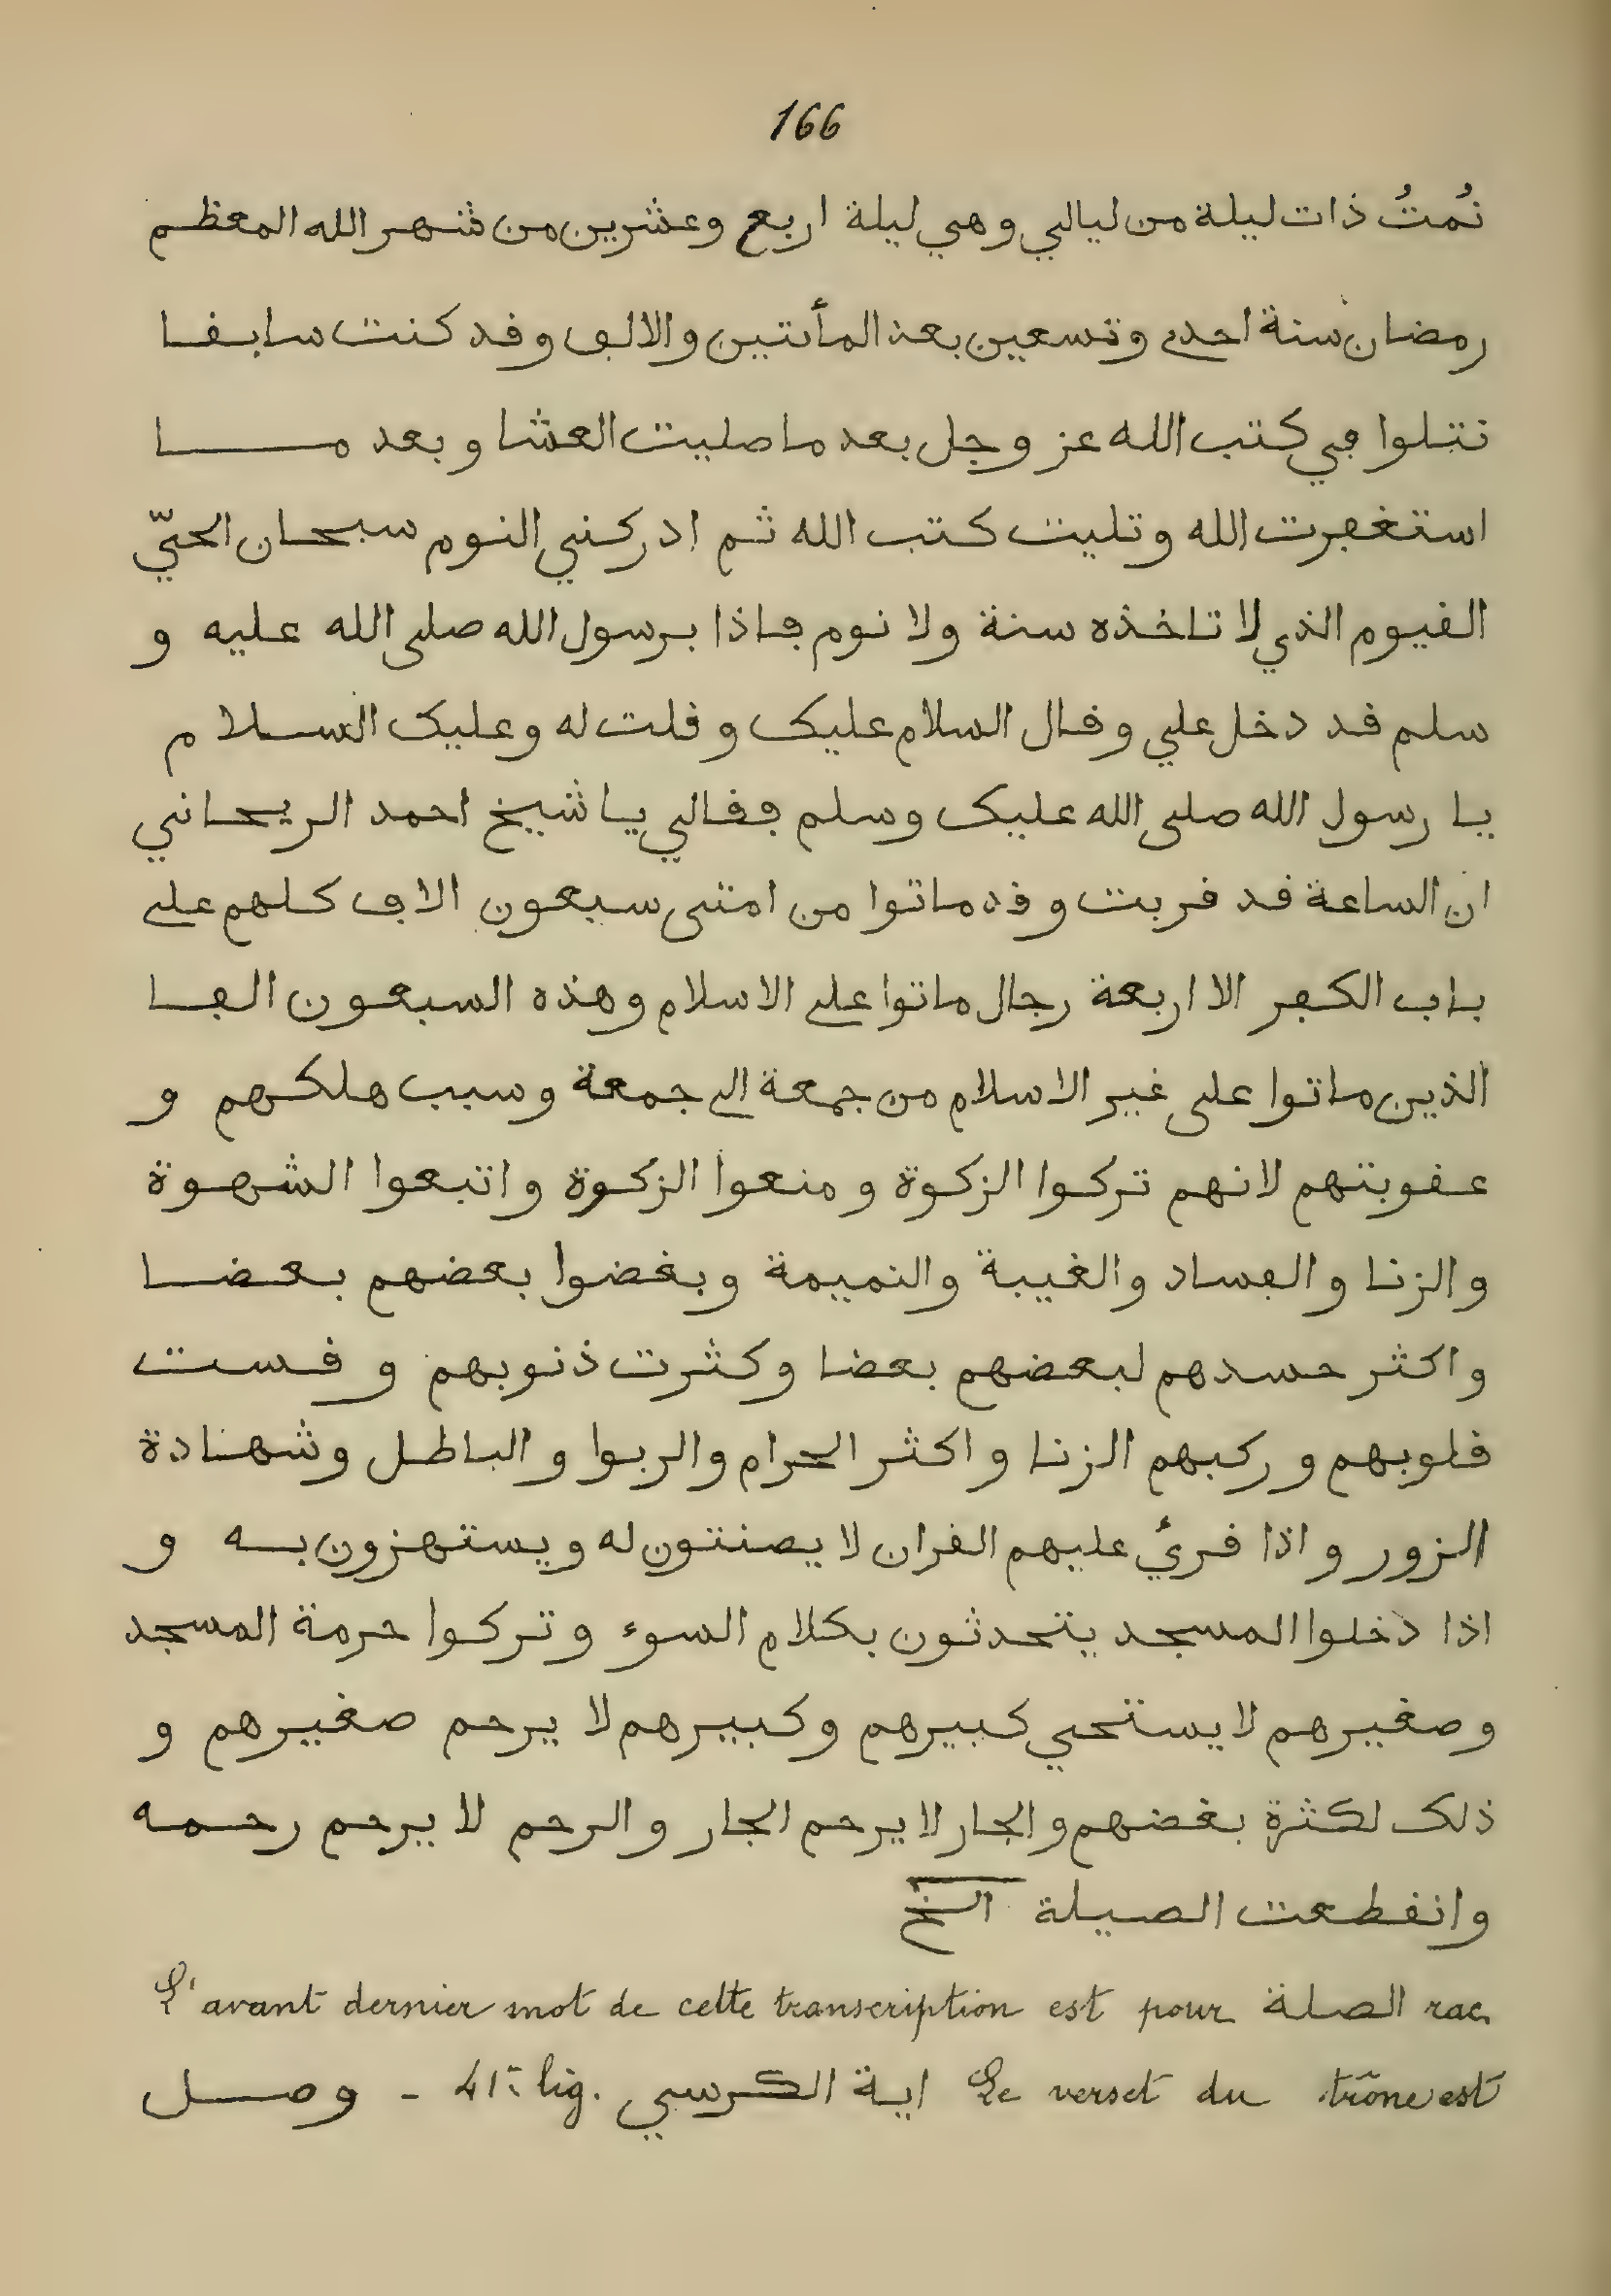 166
نُمتُ ذات ليلة من ليالي وهي ليلة اربع وعشرين من شهر الله المعظم
رمضان سنة احدى وتسعين بعد المأتين والالف وقد كنت سابقا
نتلوا في كتب الله عز وجل بعد ما صليت العشا وبعد ما
استغفرت الله وتليت كتب الله ثم ادركني النوم سبحان الحيّ
القيوم الذي لا تاخذه سنة ولا نوم فاذا برسول الله صلى الله عليه و
سلم قد دخل علي وقال السلام عليك وقلت له وعليك السلام
يا رسول الله صلى الله عليك وسلم فقالي يا شيخ احمد الريحاني
ان الساعة قد قربت وقد ماتوا من امتى سبعون الاف كلهم على
باب الكفر الا اربعة رجال ماتوا على الاسلام وهذه السبعون الفا
الذين ماتوا على غير الاسلام من جمعة الى جمعة وسبب هلكهم و
عقوبتهم لانهم تركوا الزكوة ومنعوا الزكوة واتبعوا الشهوة
والزنا والفساد والغيبة والنميمة وبغضوا بعضهم بعضا
واكثر حسدهم لبعضهم بعضا وكثرت ذنوبهم وقست
قلوبهم وركبهم الزنا واكثر الحرام والربوا والباطل وشهادة
الزور واذا قرئ عليهم القران لا يصنتون له ويستهزون به و
اذا دخلوا المسجد يتحدثون بكلام السوء وتركوا حرمة المسجد
وصغيرهم لا يستحي كبيرهم وكبيرهم لا يرحم صغيرهم و
ذلك لكثرة بغضهم والجار لا يرحم الجار والرحم لا يرحم رحمه
وانقطعت الصيلة الخ
L'avant dernier mot de cette transcription est pour الصلة rac.
وصل - 41e lig. اية الكرسي Le verset du trône est